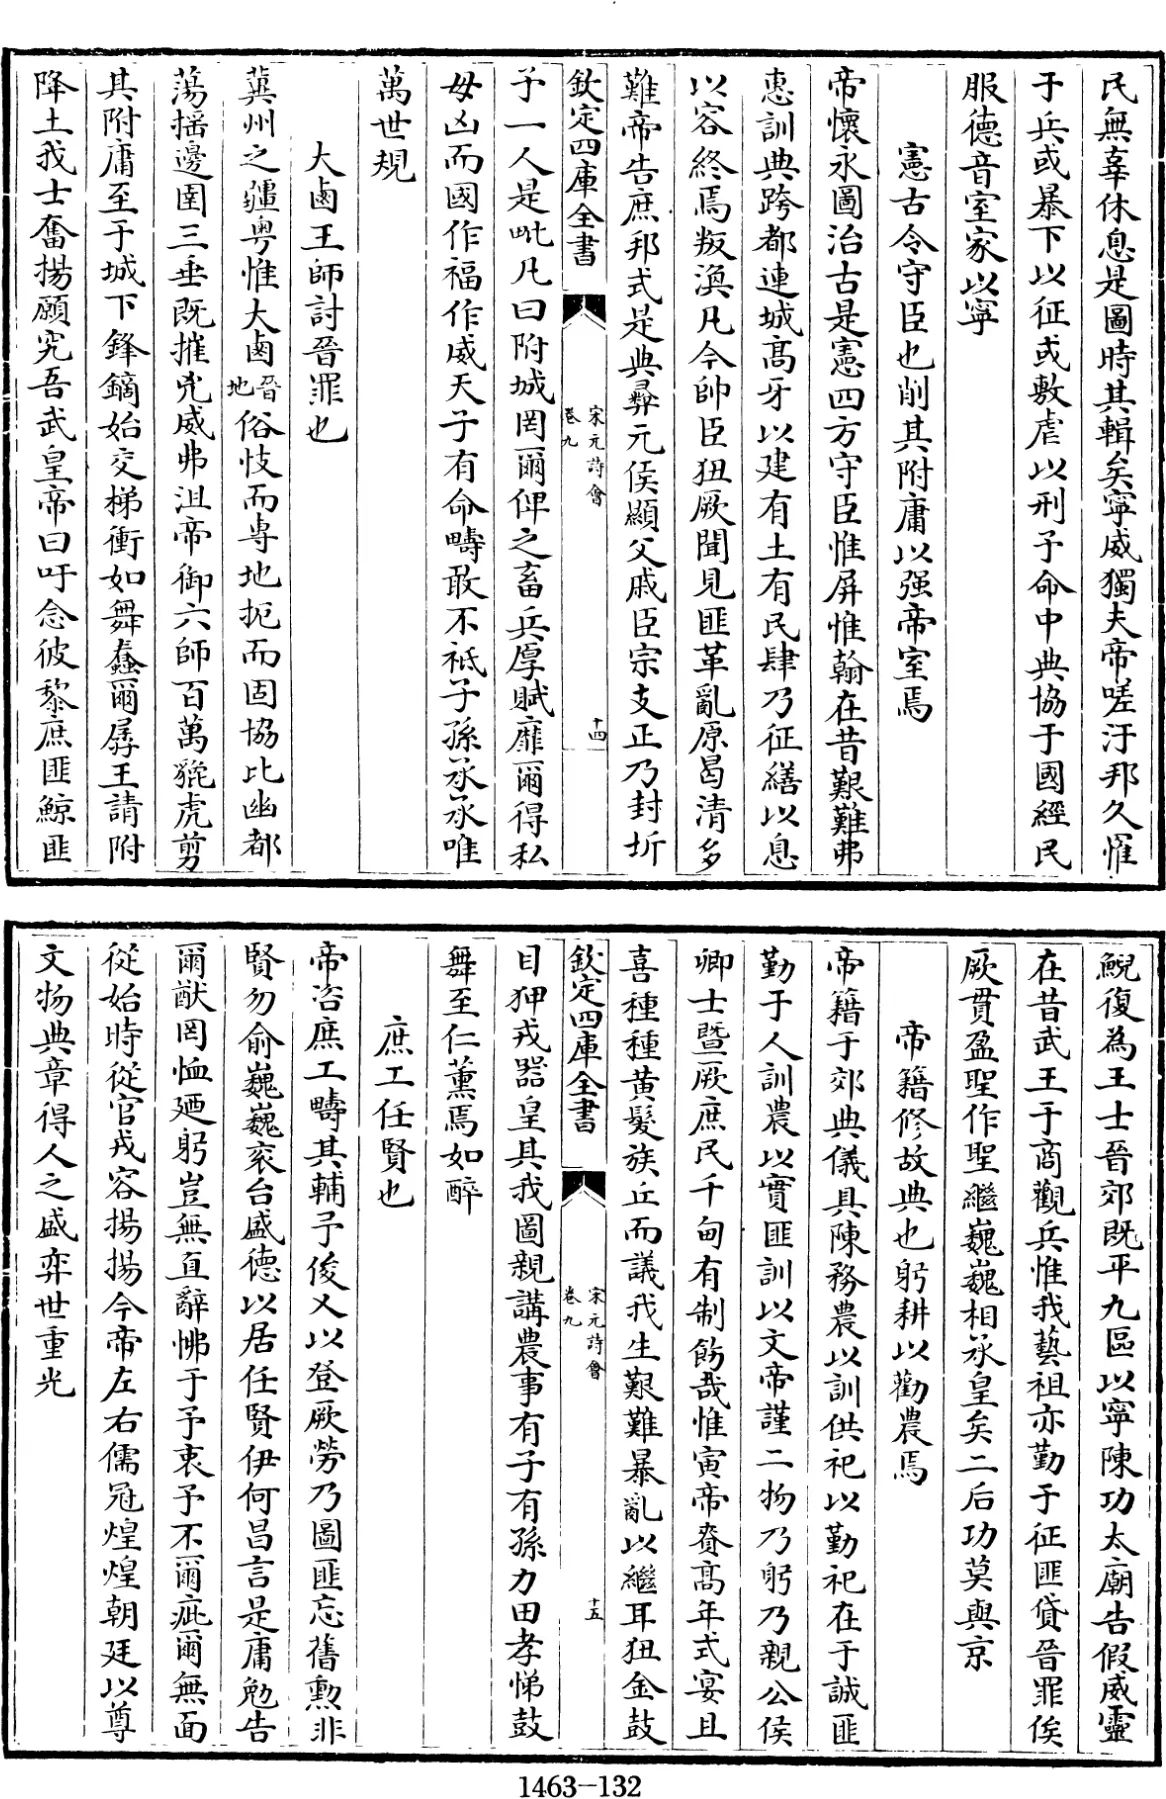 民無辜休息是圖時其輯矣寧威獨夫帝嗟汙邦久罹
于兵或暴下以征或敷虐以刑予命中典協于國經民
服德音室家以寧
憲古令守臣也削其附庸以强帝室焉
帝懷永圖治古是憲四方守臣惟屏惟翰在昔艱難弗
惠訓典跨都連城髙牙以建有土有民肆乃征繕以息
以容終焉叛渙凡今帥臣狃厥聞見匪革亂原曷清多
難帝告庶邦式是典彛元侯顯父戚臣宗支正乃封圻
欽定四庫全書
宋元詩會
卷九
十四
予一人是毗凡曰附城罔爾俾之畜兵厚賦靡爾得私
毋凶而國作福作威天子有命疇敢不祗子孫承承唯
萬世規
大鹵王師討晉罪也
蓂州之疆粤惟大鹵晉地俗忮而専地扼而固協比幽都
蕩揺邊圉三垂既摧兇威弗沮帝御六師百萬貔虎剪
其附庸至于城下鋒鏑始交梯衝如舞蠢爾孱王請附
降土我士奮揚願究吾武皇帝曰吁念彼黎庶匪鯨匪
鯢復為王士晉郊既平九區以寧陳功太廟告假威靈
在昔武王于商觀兵惟我藝祖亦勤于征匪貸晉罪俟
厥貫盈聖作聖繼巍巍相承皇矣二后功莫與京
帝籍修故典也躬耕以勸農焉
帝籍于郊典儀具陳務農以訓供祀以勤祀在于誠匪
勤于人訓農以實匪訓以文帝謹二物乃躬乃親公侯
卿士暨厥庶民千甸有制飭哉惟寅帝賚髙年式宴且
喜種種黄髮族丘而議我生艱難暴亂以繼耳狃金鼓
欽定四庫全書
宋元詩會
卷九
十五
目狎戎器皇具我圖親講農事有子有孫力田孝悌鼓
舞至仁薰焉如醉
庶工任賢也
帝咨庶工疇其輔予俊乂以登厥勞乃圖匪忘舊勲非
賢勿俞巍巍衮台盛德以居任賢伊何昌言是庸勉告
爾猷罔恤廼躬豈無直辭怫于予衷予不爾疵爾無面
從始時從官戎容揚揚今帝左右儒冠煌煌朝廷以尊
文物典章得人之盛弈世重光
1463-132